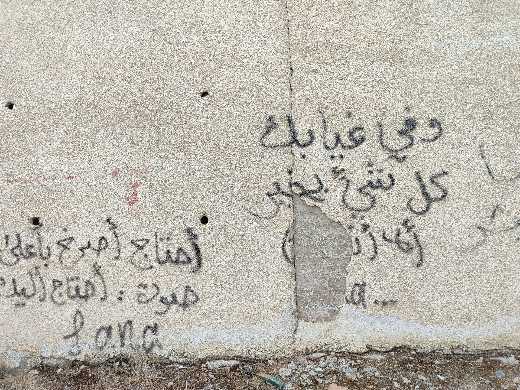 وفي غيابك
كل شيء بخير
أحتاج أصرخ بأعلى
صوت : أحتاج إليك
Lana